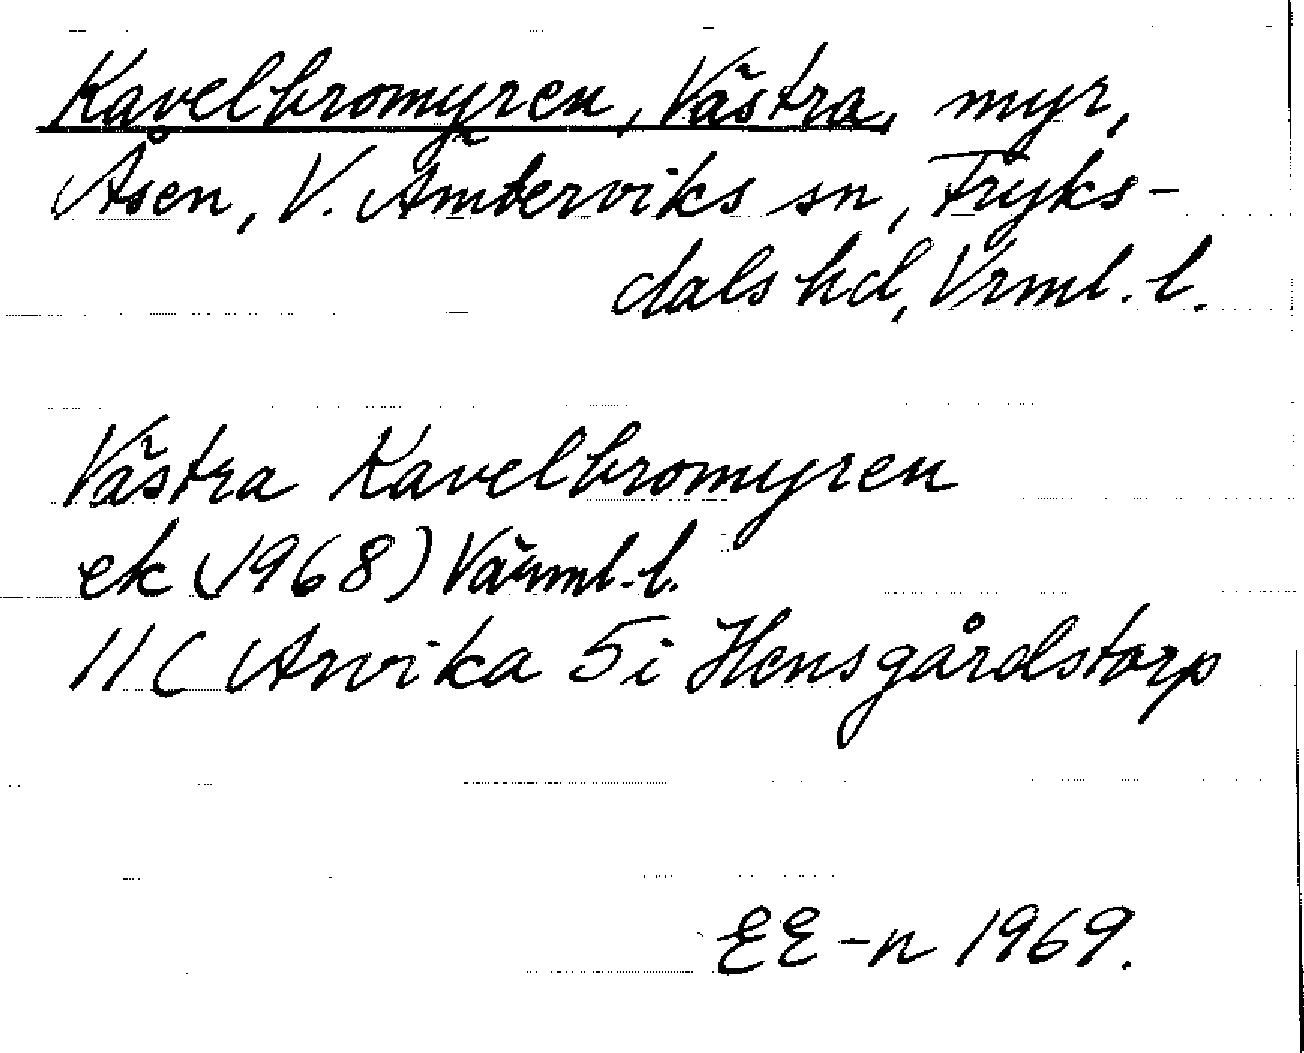 Kavelbromyren, Västra, myr,
Åsen, V. Ämterviks sn, Fryks-
dals hd, Vrml. l.
Västra Kavelbromyren
ek (1968) Värml. l.
11 C Arvika 5i Hensgårdstorp
EE-n 1969.